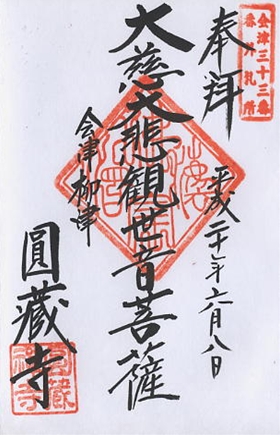 会津三十三番
番外札所
奉拝
平成二十一年六月八日
大慈大悲観世音菩薩
会津柳津
圓藏寺